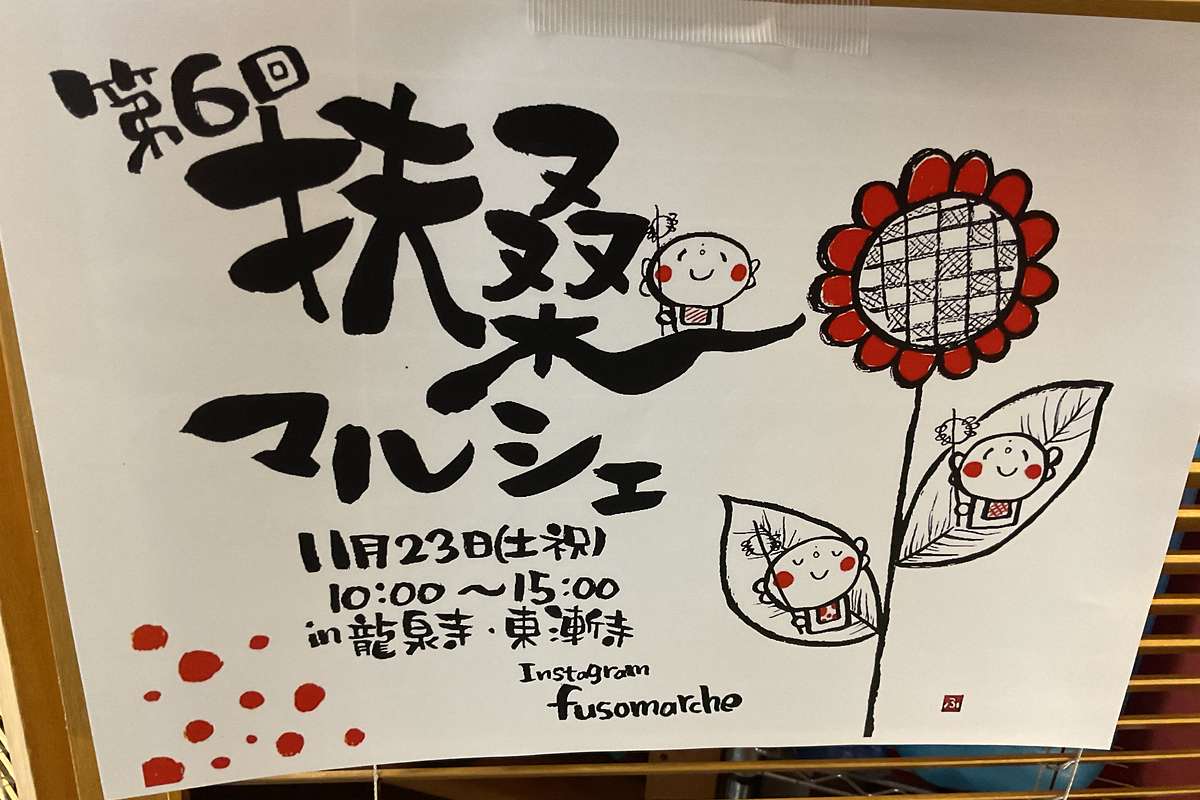 第6回
扶桑
マルシェ
11月23日(土祝)
10:00～15:00
in 龍泉寺・東漸寺
Instagram
fusomarche